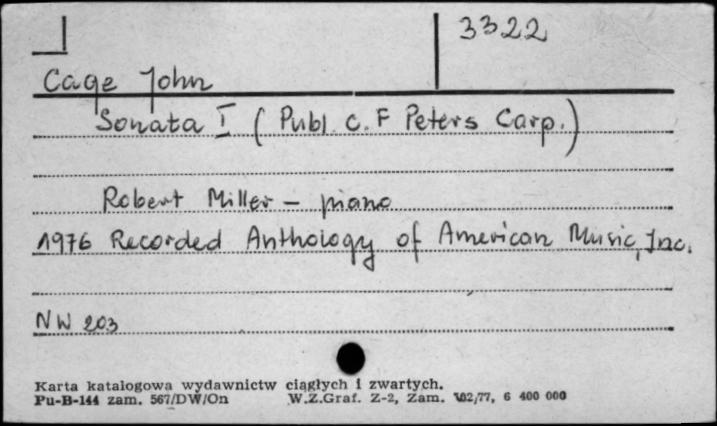 3322
Cage John
Sonata I (Publ. C. F Peters Corp.)
Robert Miller – piano
1976 Recorded Anthology of American Music, Inc.
NW 203
Karta katalogowa wydawnictw ciągłych i zwartych.
Pu-B-144 zam. 567/DW/On W.Z.Graf. Z-2, Zam. 102/77, 6 400 000